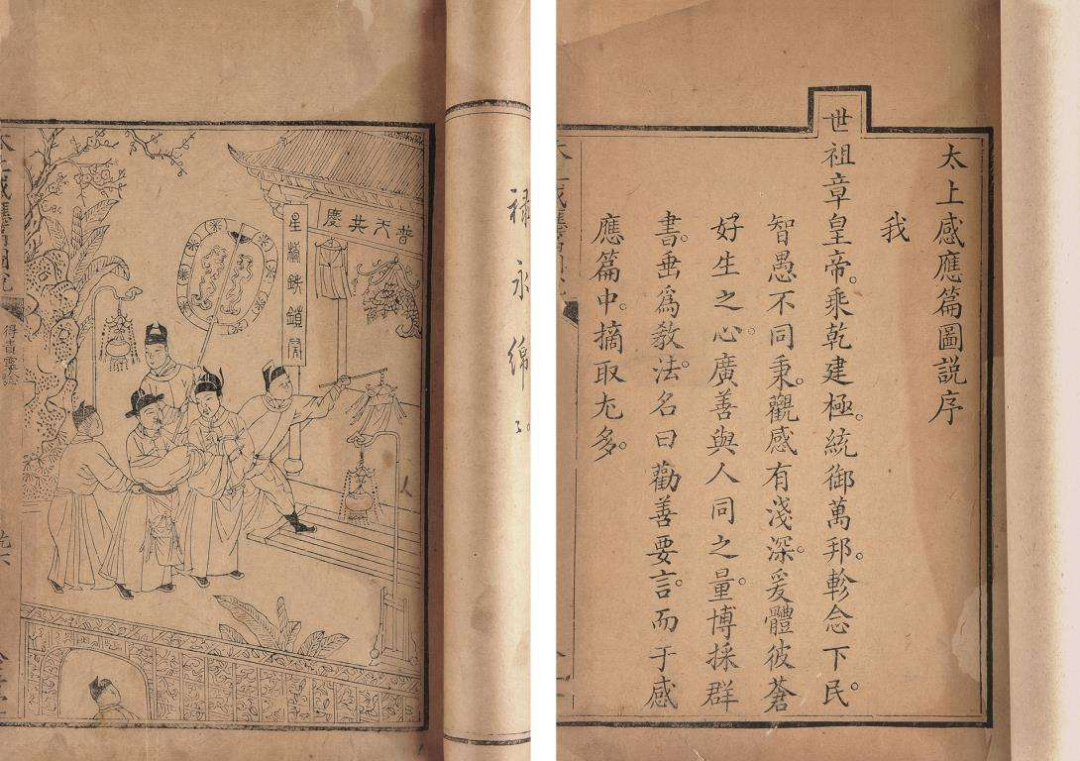 太上感應篇圖説序
我
世祖章皇帝。乘乾建極。統御萬邦。軫念下民。
智愚不同秉。觀感有淺深。爰體彼蒼
好生之心。廣善與人同之量。博採群
書。垂爲教法。名曰勸善要言。而于感
應篇中。摘取尤多。
禄永綿
普天共慶
星橋鉄鎖開